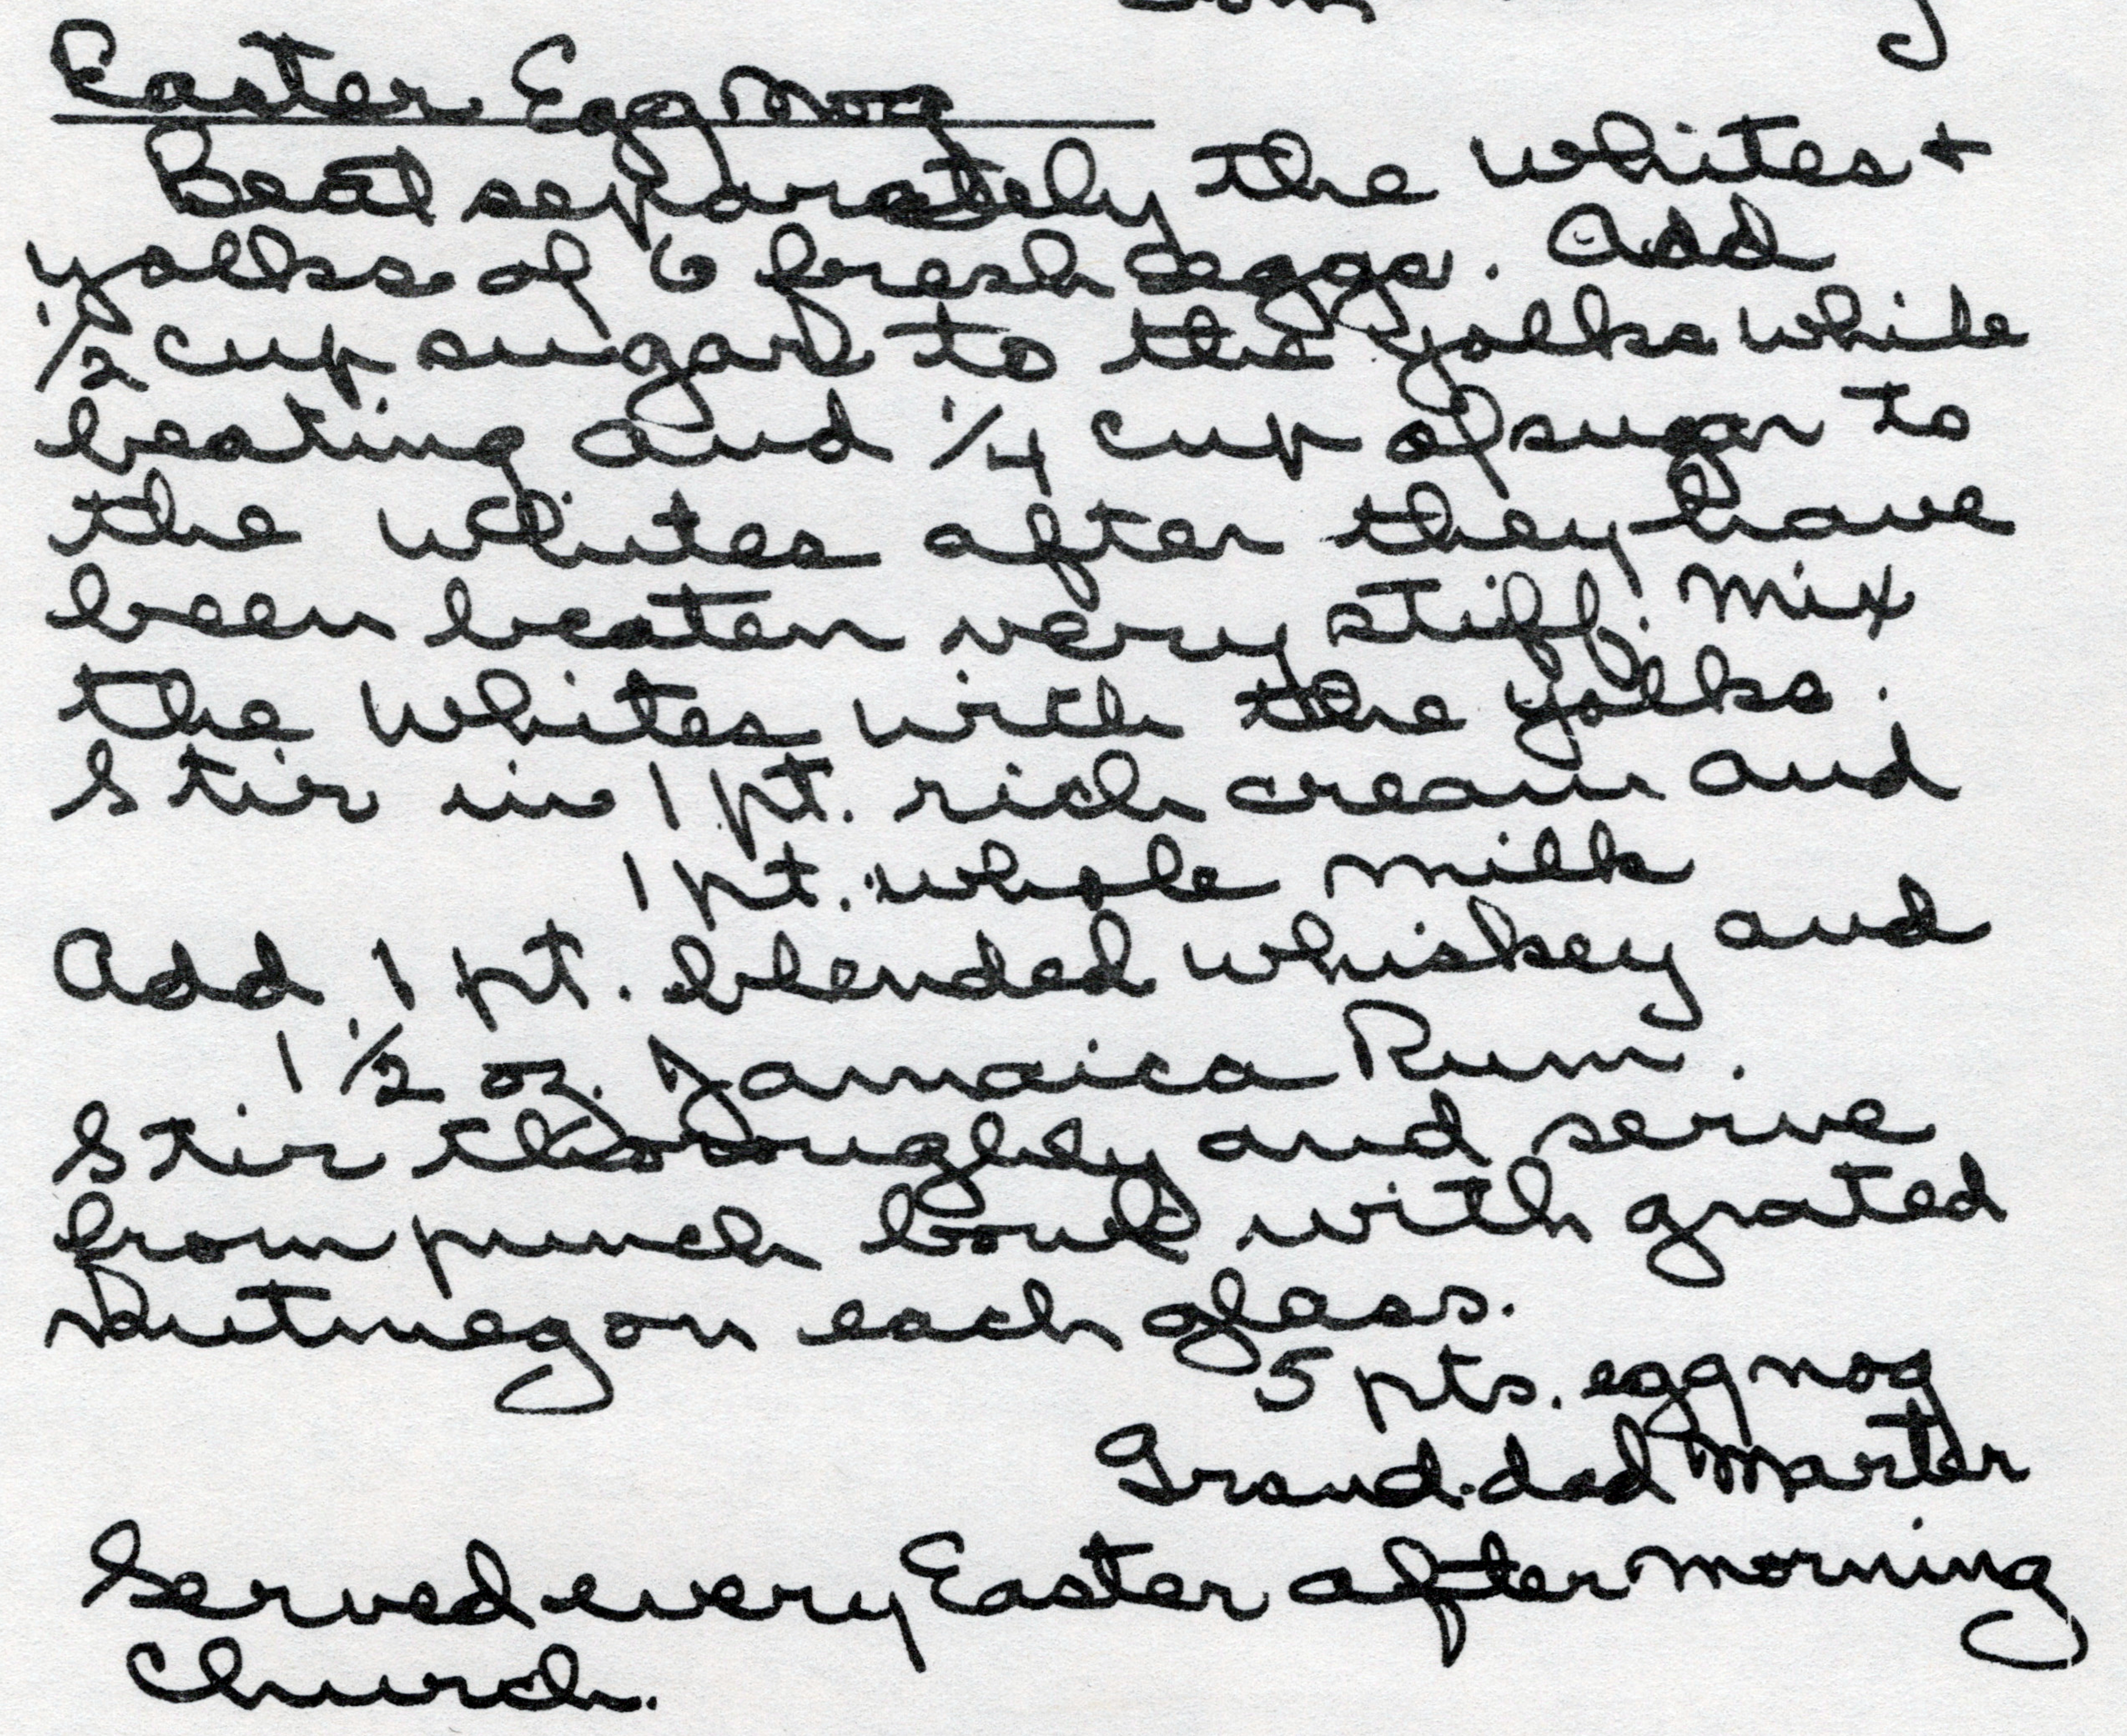 Easter Egg Nog
Beat separately the whites +
yolks of 6 fresh eggs. Add
1/2 cup sugar to the yolks while
beating and 1/4 cup of sugar to
the whites after they have
been beaten very stiff. Mix
the whites with the yolks.
Stir in 1 pt. rich cream and
1 pt. whole milk
Add 1 pt. blended whiskey and
1 1/2 oz. Jamaica Rum.
Stir thoroughly and serve
from punch bowl with grated
Nutmeg on each glass.
5 pts. eggnog
Grand-dad Marter
Served every Easter after morning
Church.